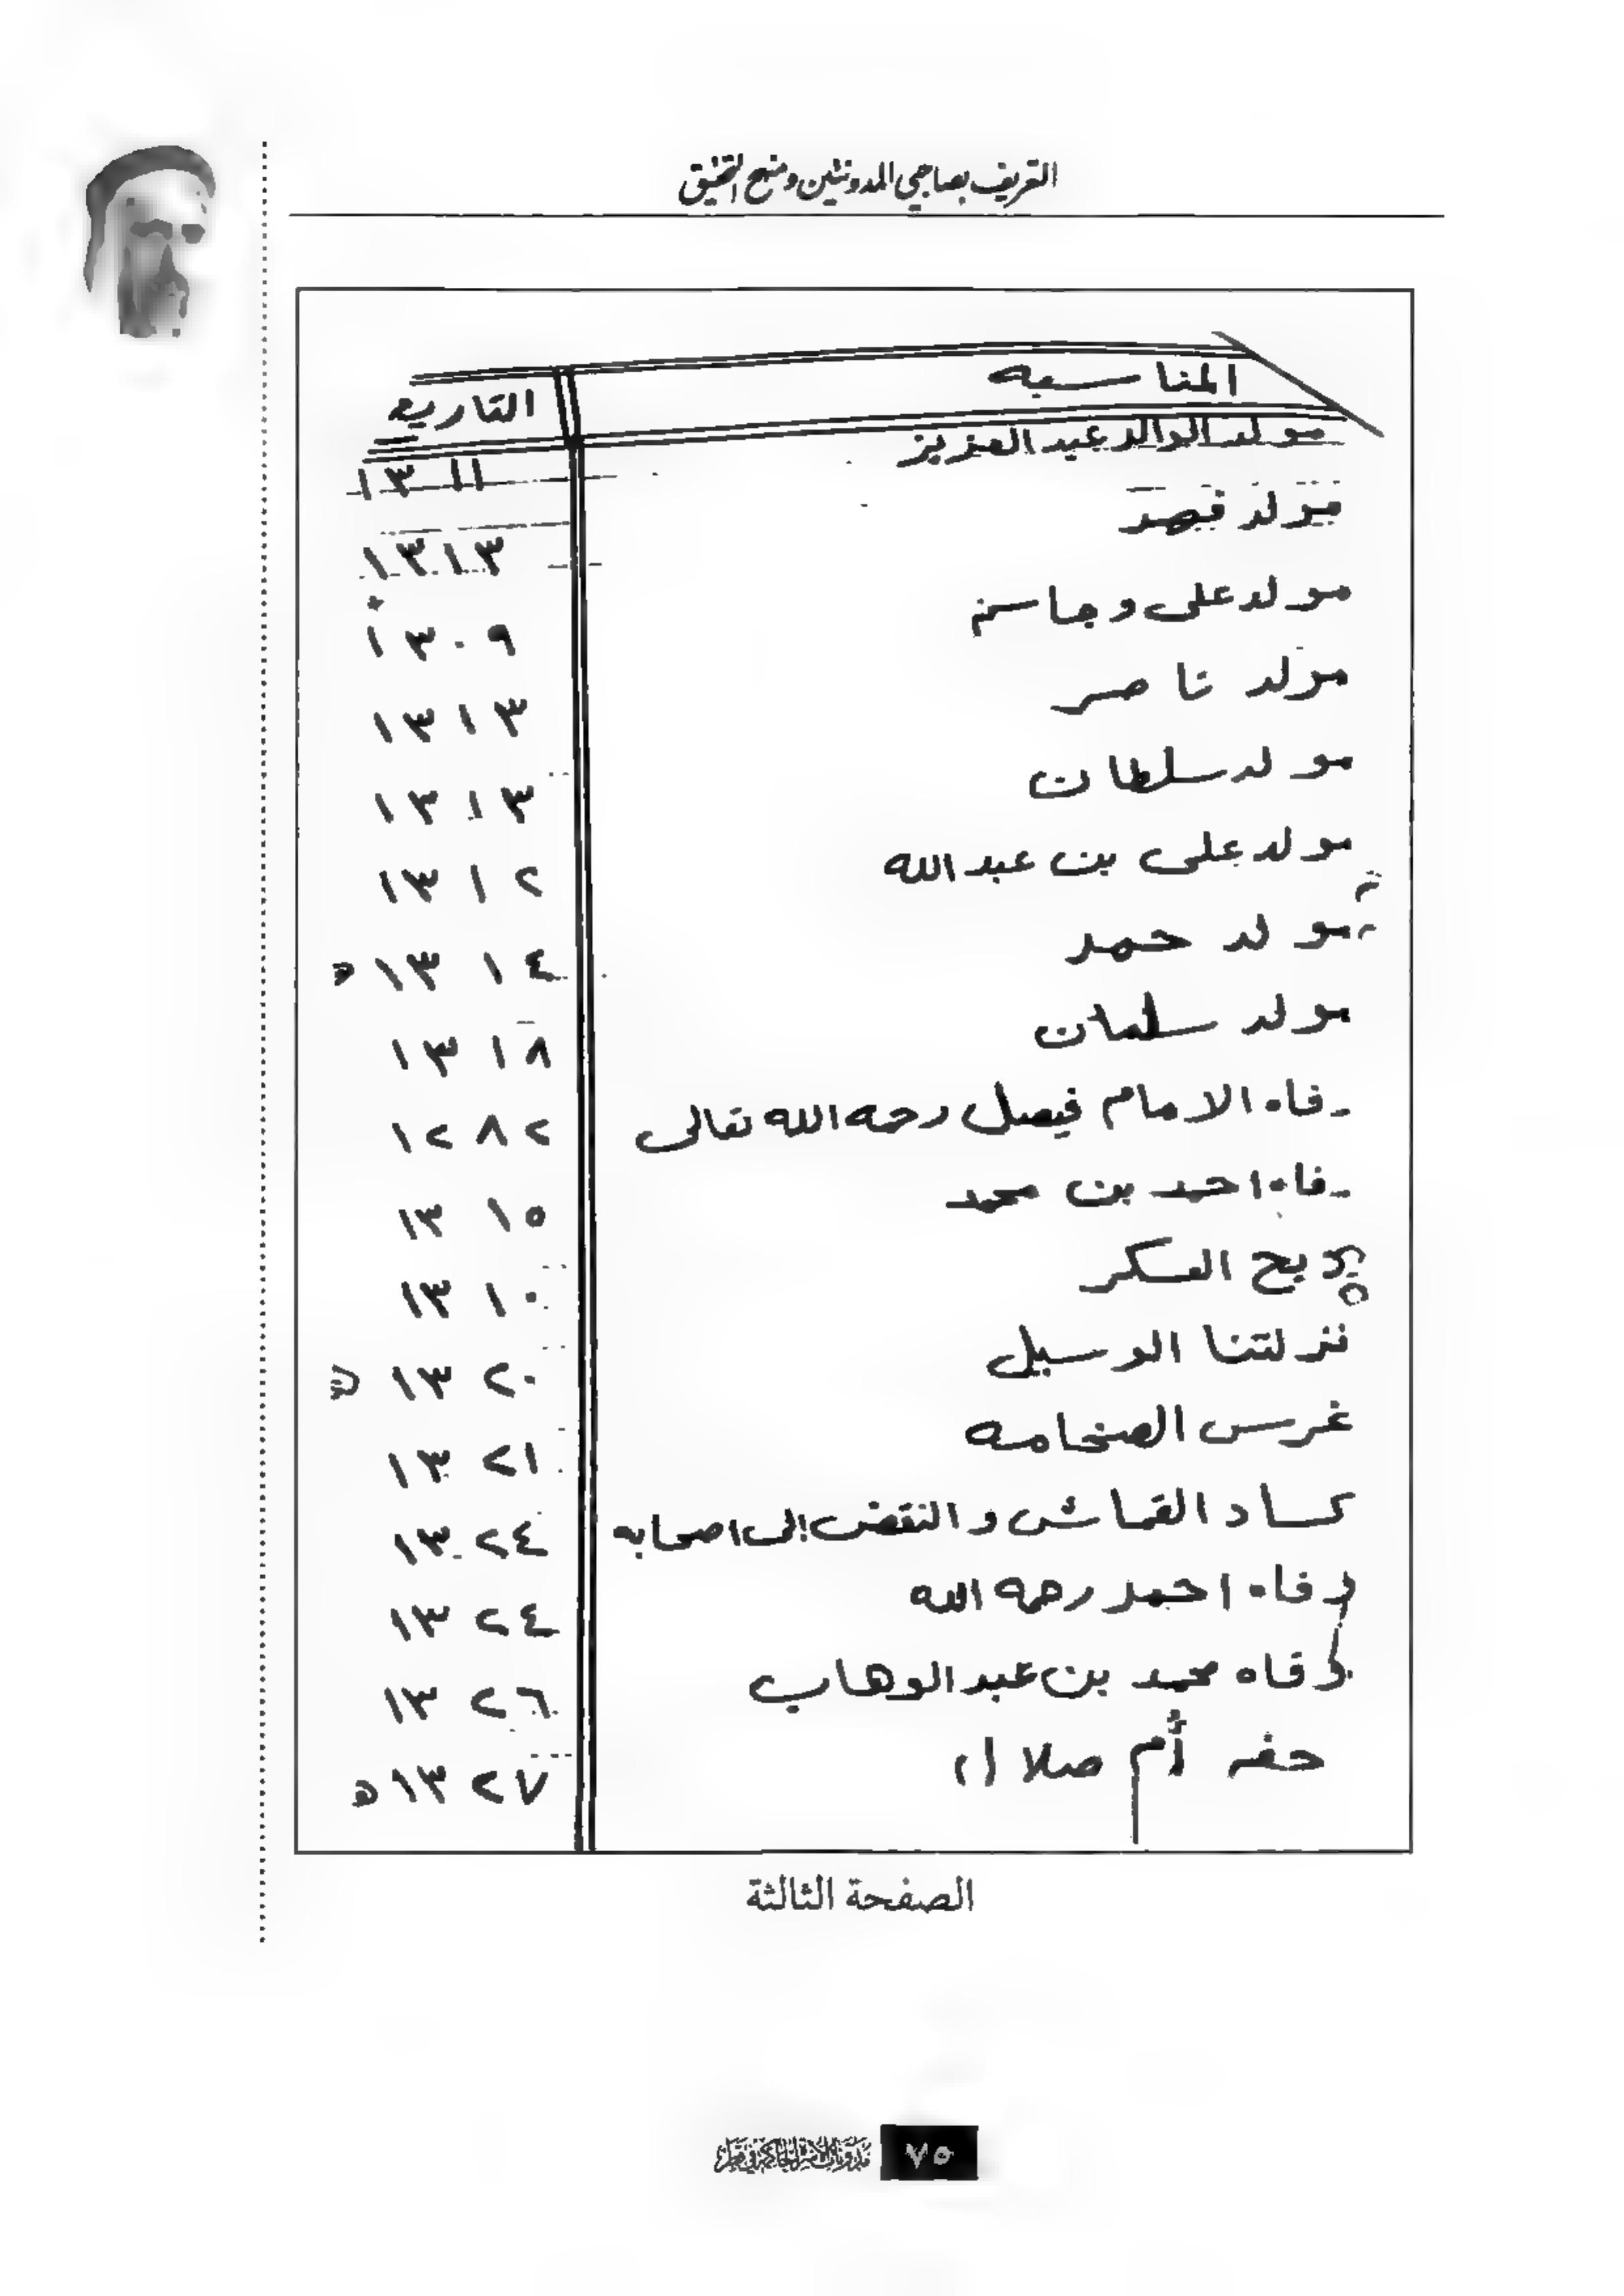 التعريف بصاحبي المدونتين ومنهج التحقيق
المناسبه التاريخ
مولد الوالد عبد العزيز ١٣١١
مولد فهد ١٣١٣
مولد على وجاسم ١٣٠٩
مولد ناصر ١٣١٣
مولد سلطان ١٣١٣
مولد على بن عبد الله ١٣١٢
مولد حمد ١٣١٤ ه
مولد سلمان ١٣١٨
وفاه الامام فيصل رحمه الله تعالى ١٢٨٢
وفاه احمد بن محمد ١٣١٥
ذبح العسكر ١٣١٠
نزلتنا الوسيل ١٣٢٠
غرس الصخامه ١٣٢١
كساد القماش والنقض إلى اصحابه ١٣٢٤
وفاه احمد رحمه الله ١٣٢٤
وفاه محمد بن عبد الوهاب ١٣٢٦
حفر أم صلال ١٣٢٧ ه
الصفحة الثالثة
٧٥